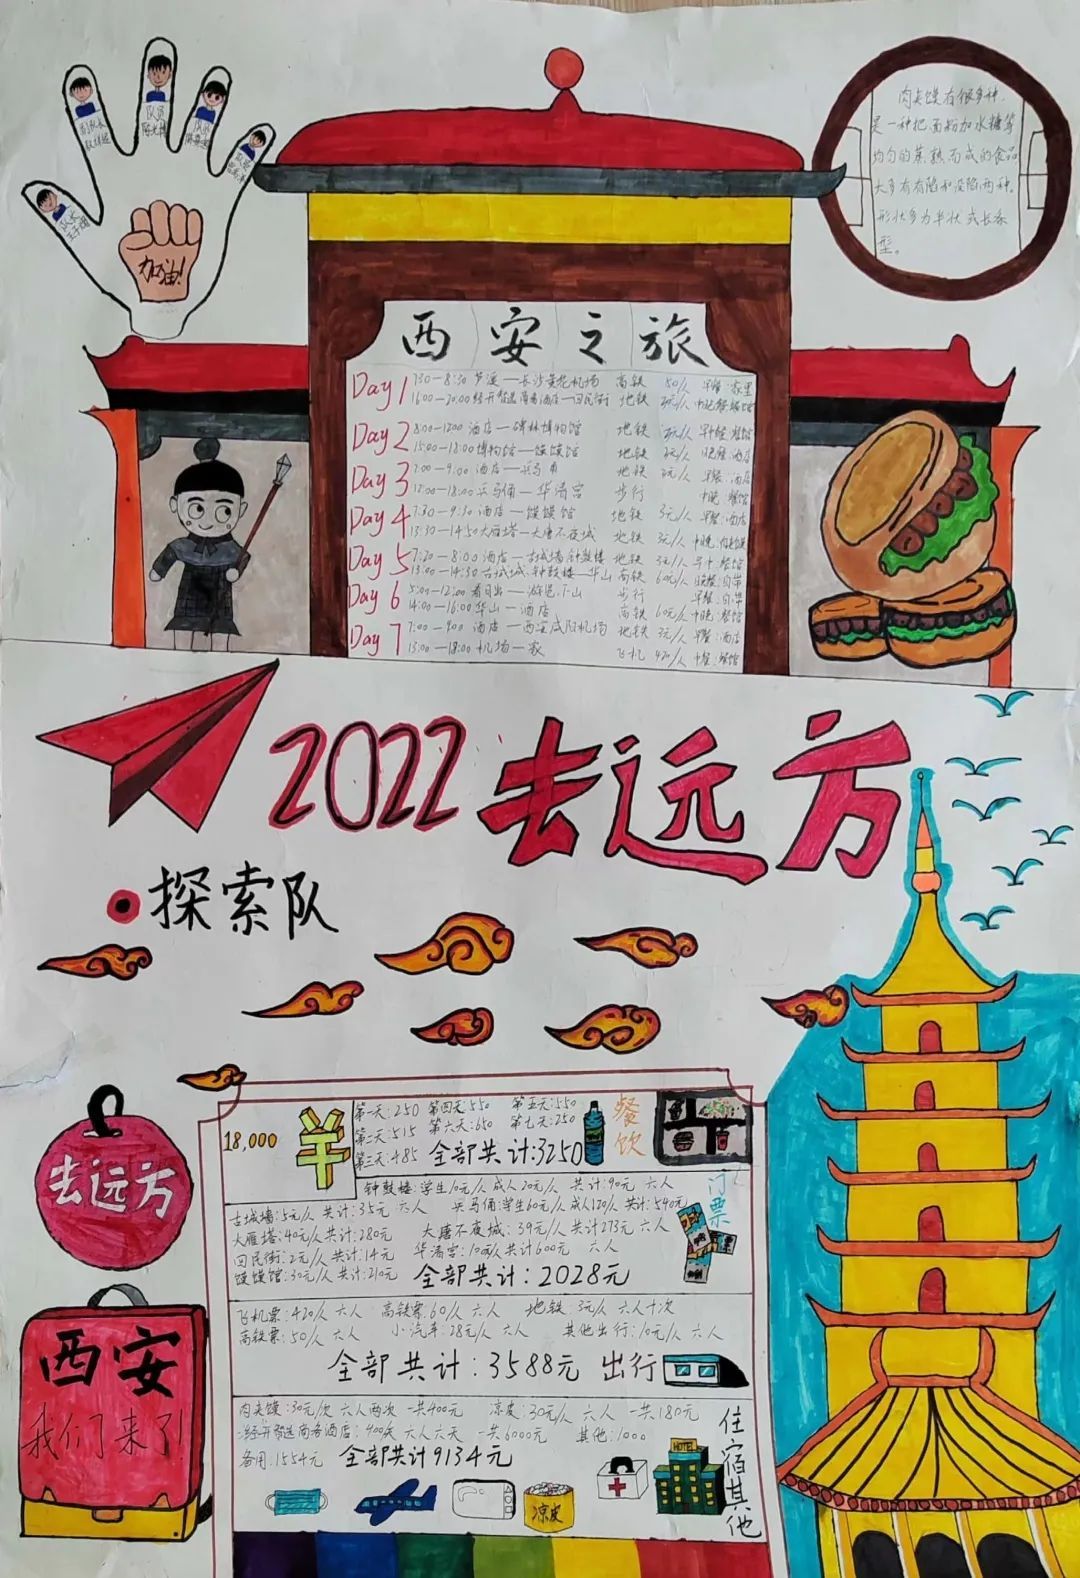 加油!
肉夹馍有很多种,
是一种把面粉加水糖等
均匀的蒸熟而成的食品
大多有有陷和没陷两种。
形状多为半状或长条
型。
西安之旅
Day 1 7:30—8:30 芦溪—长沙黄花机场 高铁 50/人 早餐:家里
16:00—20:00 经开智选商务酒店—回民街 地铁 中晚餐餐馆
Day 2 8:00—12:00 酒店—碑林博物馆 地铁 3元/人 早中餐:餐馆
15:00—18:00 博物馆—馍馍馆 地铁 3元/人 晚餐:酒店
Day 3 7:00—9:00 酒店—兵马甬 地铁 3元/人 早餐:酒店
12:00—18:00 兵马俑—华清宫 步行 中晚:餐馆
Day 4 7:30—9:30 酒店—馍馍馆 地铁 3元/人 早餐:酒店
13:30—14:50 大雁塔—大唐不夜城 地铁 3元/人 中晚:肉夹馍
Day 5 7:20—8:00 酒店—古城墙钟鼓楼 地铁 3元/人 早中餐馆
13:00—14:30 古城城、钟鼓楼—华山 高铁 60元/人 晚餐:自带
Day 6 5:00—12:00 看日出— 步行 早餐:自带
14:00—16:00 华山—酒店 高铁 60元/人 中晚:餐馆
Day 7 7:00—9:00 酒店—西安咸阳机场 地铁 3元/人 早餐:酒店
13:00—18:00 机场—家 飞机 420/人 中餐:餐馆
2022去远方
探索队
18,000
第一天:250 第四天:550 第五天:550
第二天:515 第六天:650 第七天:250
第三天:485 全部共计:3250
餐饮
钟鼓楼:学生10元/人 成人20元/人 共计:90元 六人
古城墙:5元/人 共计:35元 六人 兵马俑:学生60元/人 成人120/人 共计:540元
大雁塔:40元/人 共计:280元 大唐不夜城:39元/人 共计273元 六人
回民街:2元/人 共计:14元 华清宫:100元/人 共计600元 六人
馍馍馆:30元/人 共计:210元 全部共计:2028元
门票
飞机票:420/人 六人 高铁票:60/人 六人 地铁:3元/人 六人十次
高铁票:50/人 六人 小汽车:28元/人 六人 其他出行:10元/人 六人
全部共计:3588元 出行
肉夹馍:30元/次 六人两次 一共400元 凉皮:30元/人 六人 一共180元
经开智选商务酒店:400/天 六人六天 一共6000元 其他:1000
备用:1554元 全部共计9134元
住宿其他
HOTEL
凉皮
去远方
西安
我们来了!